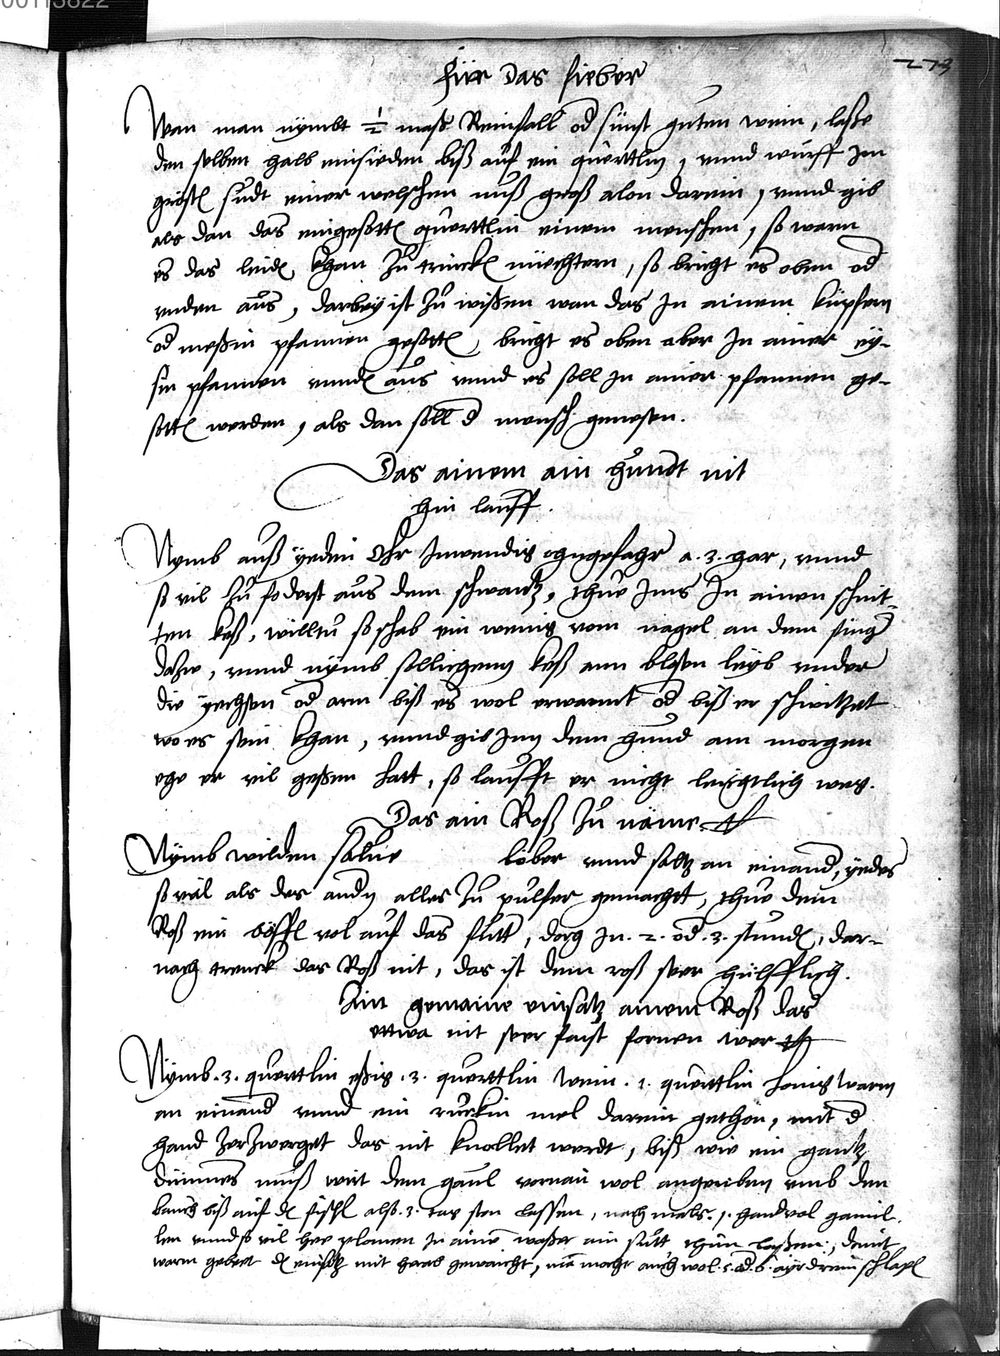 00113822
273
Für das fieber
Wan man nymbt ½ maß Reinfall od sunst guten wein, laße
den selben halb einsieden biß auf ein querttlin, unnd würff Im
grösten sudt einer welschen nuß groß alon darein, unnd gib
als dan das eingesotten querttlin einem menschen, so warm
er das leiden khan zu trincken nüechtern, so bricht es oben od
unden aus, darbey ist zu wißen wan das In ainem küpferen
od meßin pfannen gesotten, bricht es oben aber In ainer ey-
sin pfannen unden aus unnd es soll In ainer pfannen ge-
sotten werden, als dan soll d mensch genesen.
Das ainem ain hundt nit
hin lauff.
Nymb auß yedem Ohr Inwendig ongefahr a. 3. har, unnd
so vil zu foderst aus dem schwantz, thue Ims In ainen schnit-
ten keß, willtu so schab ein wenig vom nagel an dem finger
darzu, unnd nymb sollichen keß am bloßen leyb under
die yechsen od arm biß er wol erwarmt od biß er schwitzet
wo es sein khan, unnd gib Inn dem hund am morgen
ehe er vil geßen hatt, so laufft er nicht leuchtlich weg.
Das ain Roß zu näme
Nymb wilden salve löber unnd saltz an einand, yedes
so vil als des andern alles zu pulfer gemacht, thue dem
Roß ein löffl vol auf das futter, doch In. 2. od. 3. stunden, dar-
nach trenck das Roß nit, das ist dem roß seer hülfflich.
Ain gemaine einsatz ainem Roß das
ettwa nit seer faist fornen wer
Nymb. 3. querttlin eßig. 3. querttlin wein. 1. querttlin honig warm
an einand unnd ein ruckin mel darein gethon, mit d
hand zerzwerget das nit knollet werdt, biß wie ein gantz
dünnes muß wirt dem gaul vornan wol angeriben umb den
bauch biß auf den also. 3. tag sten lassen, nach mals. 1. handvol gamil-
len unnd so vil hee plomen In ainem waßer ain sutt thun laßen, damit
warm gebeet den einsatz mit herab gewaicht, man mecht auch wol. 5. od. 6. ayr drein schlagen